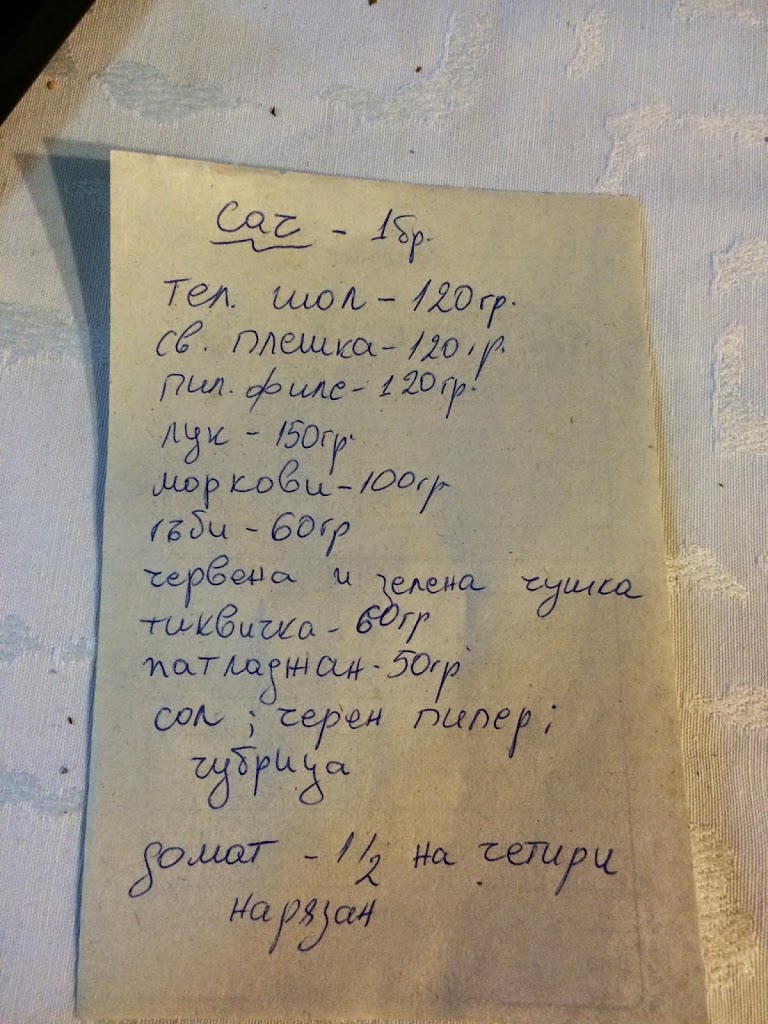 сач - 1бр.
тел. шол - 120гр.
св. плешка - 120гр.
пил. филе - 120гр.
лук - 150гр.
моркови - 100гр
гъби - 60гр
червена и зелена чушка
тиквичка - 60гр
патладжан - 50гр
сол ; черен пипер ;
чубрица
домат - 1/2 на четири
нарязан